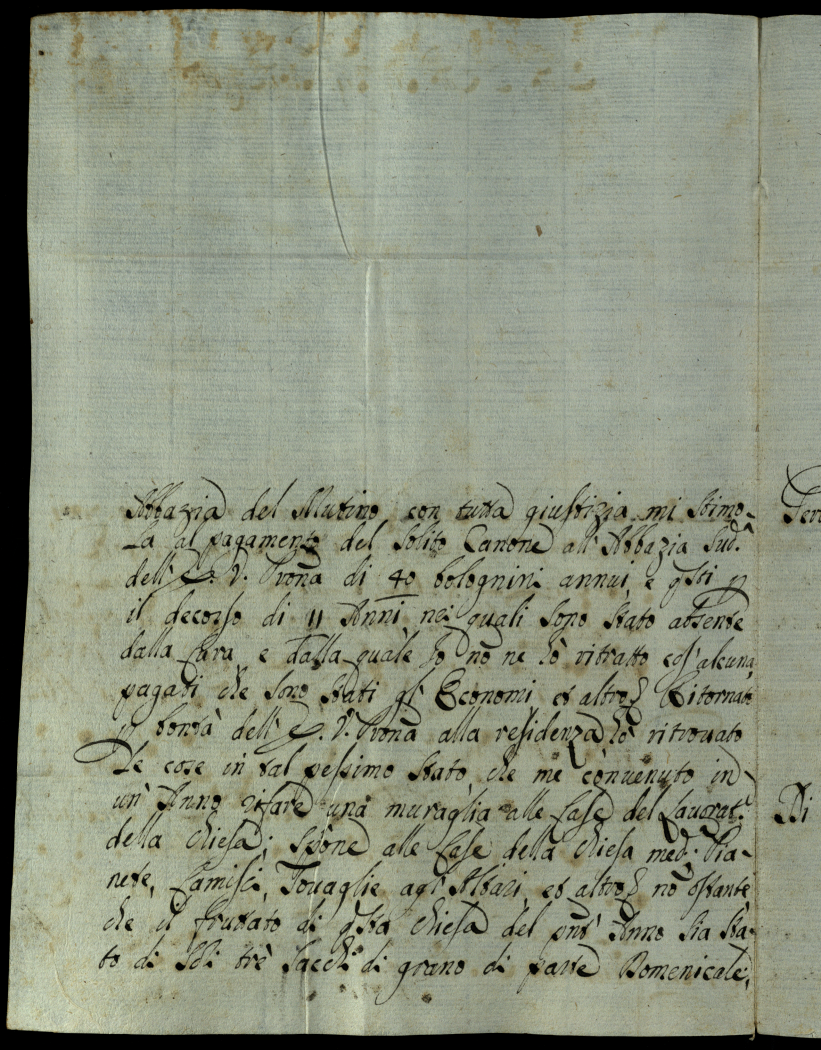 Abbazia del Mutino con tutta giustizia mi stimo-
la al pagamento del solito Canone all'Abbazia sud.ª
dell'E. V. Prona di 40 bolognini annui, e qsti p
il decorso di 11 Anni nei quali sono stato absente
dalla Cura, e dalla quale Io nō ne hò ritratto cos'alcuna
pagati che sono stati gl'Economi et altro. Ritornato
p bontà dell'E. V. Prona alla residenza hò ritrovato
le cose in tal pessimo stato, che me cōnvenuto in
un'Anno rifare una muraglia alle Case del Lavorat.e
della Chiesa; Spōne alle Case della Chiesa med.ª Pia-
nete, Camisci, Tovaglie agl'Altari, et altro, nō ostante
che il fruttato di qsta Chiesa del pnt' Anno sia sta-
to di soli trè sacchi di grano di parte Domenicale;
Di